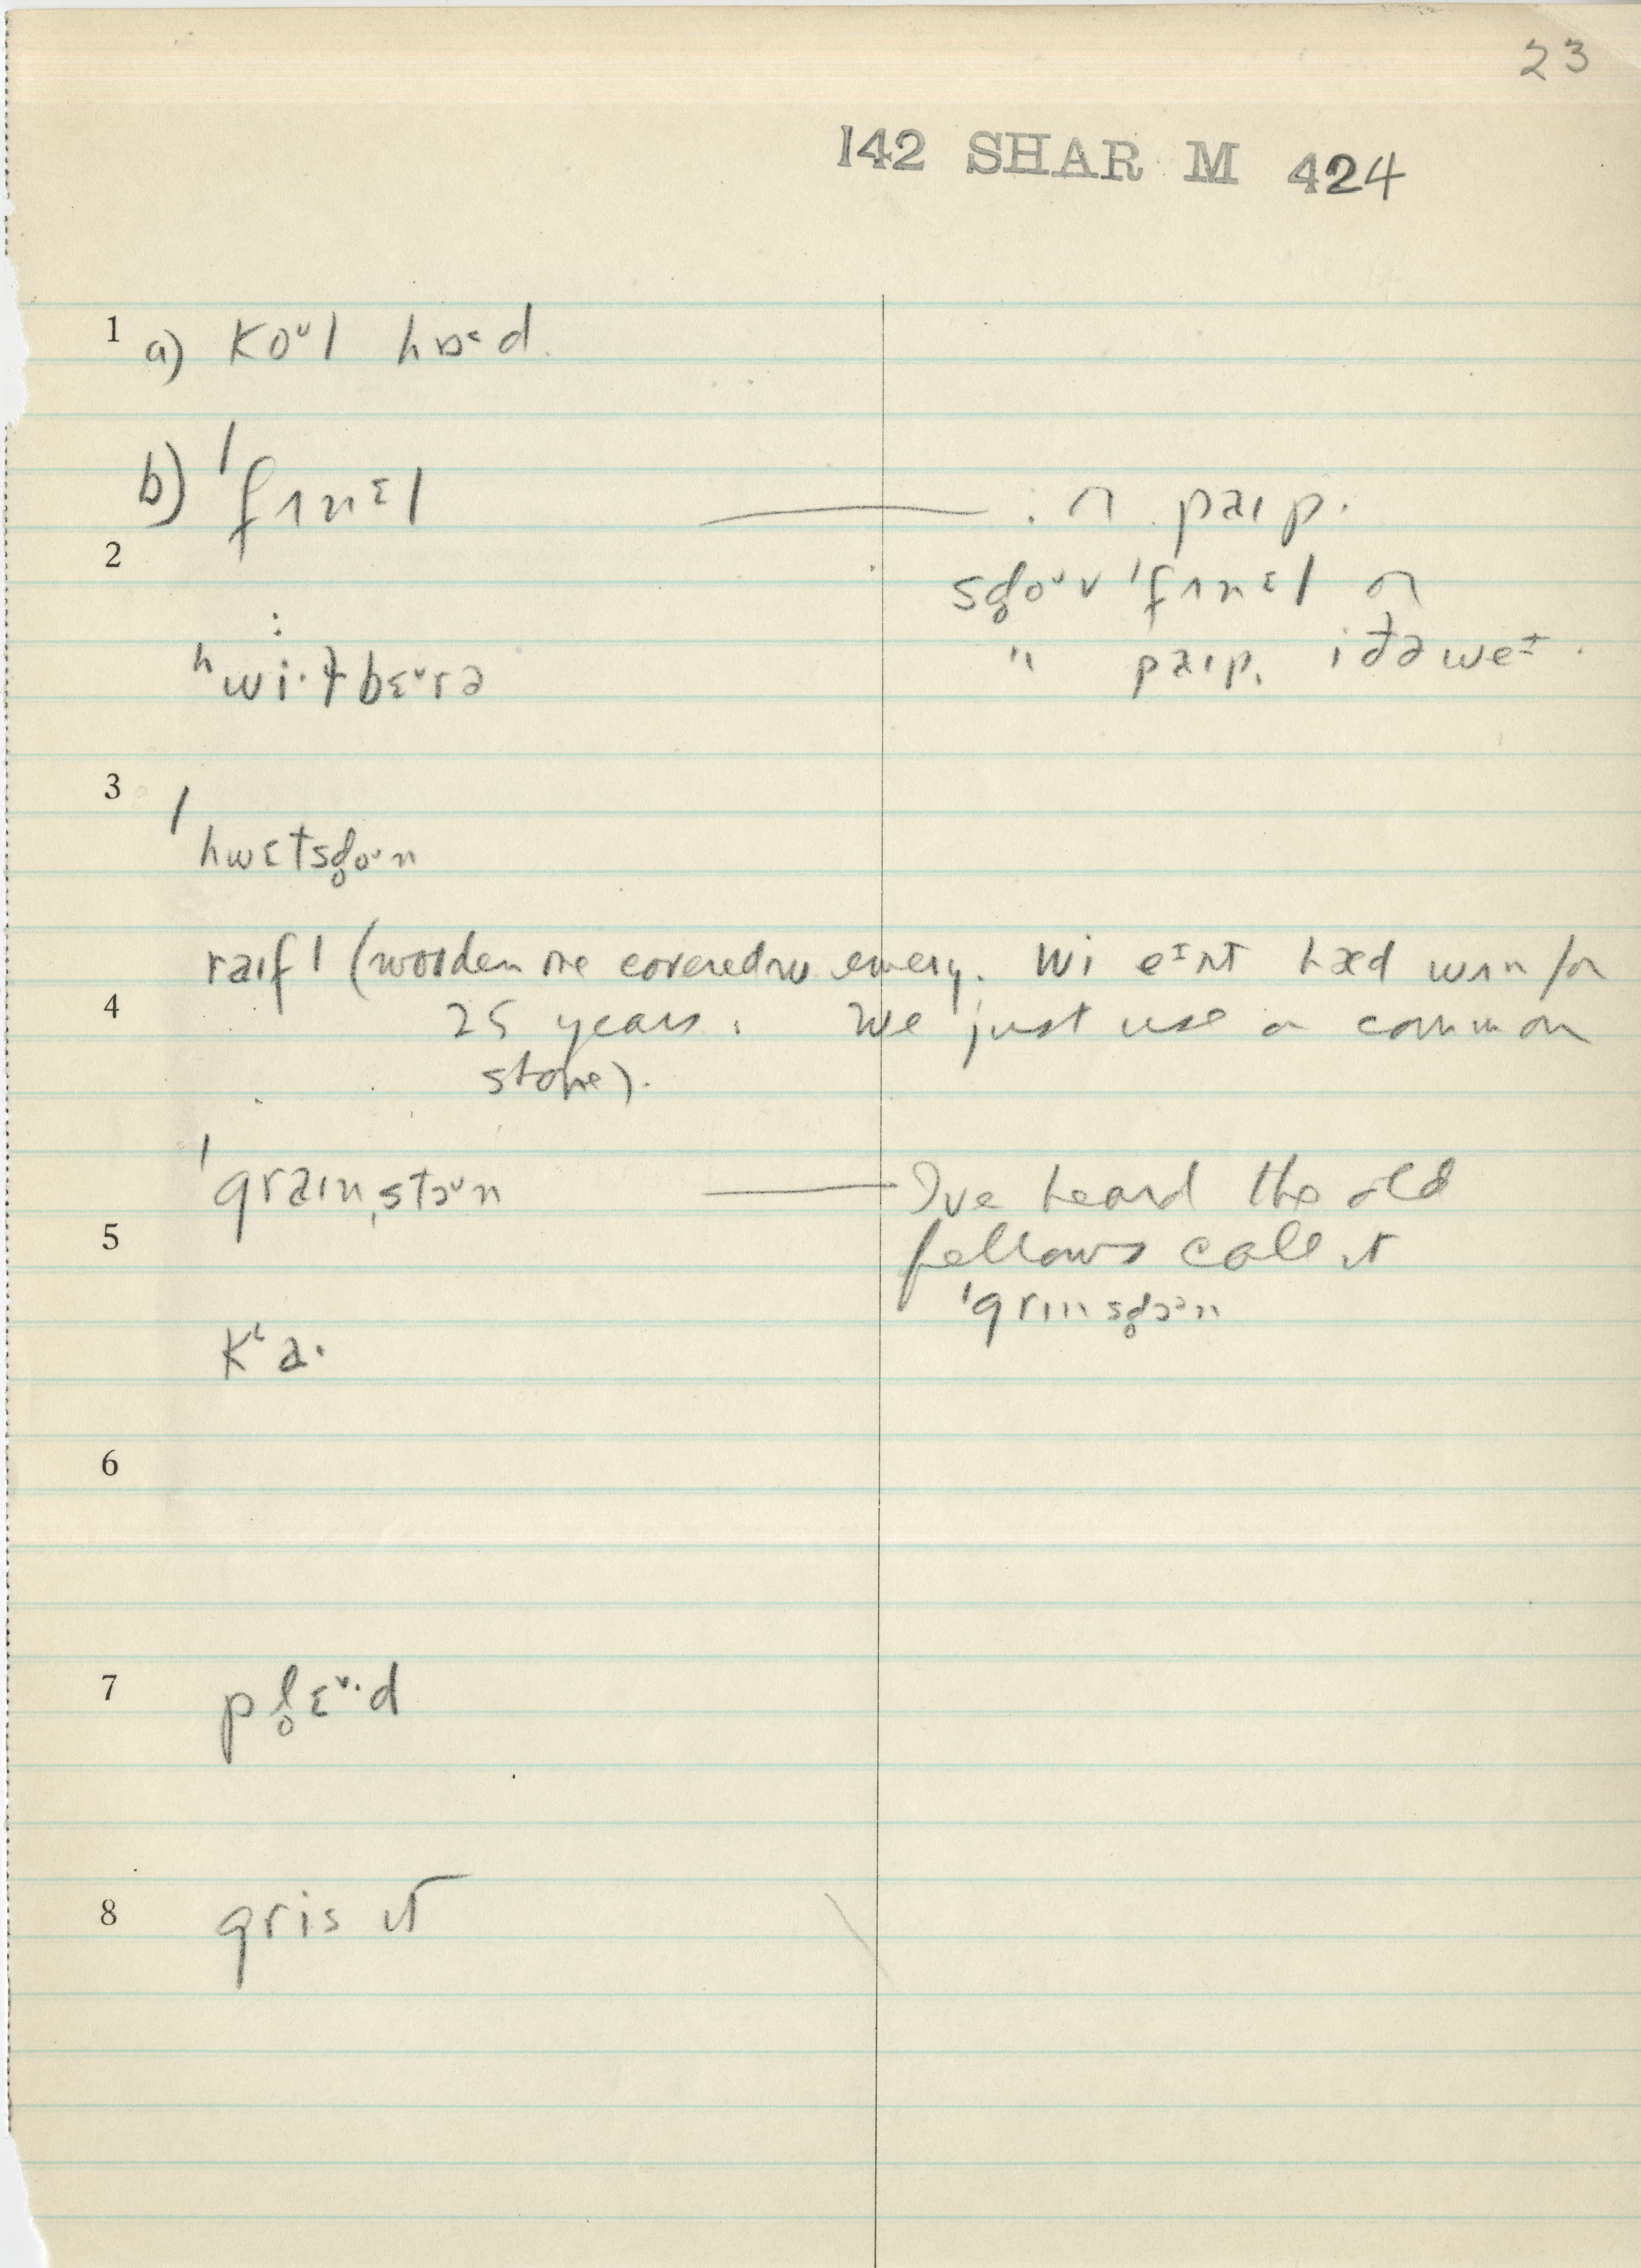 23
142 SHAR M 424
1 a) koᵘl hɒˤd
b) ˈfʌnᵋl — ɔn paɪp.
2 sd̥oᵛv ˈfʌnᵋl ɔn
ʰwi·lbɛᵛrə " paɪp. iðə weᶦ.
3 ˈhwɛtsd̥oᵘn
raɪfl (wooden one covered w emery. wi eᶦnt hæd wʌn for
4 25 years. We just use a common
stone).
ˈgraɪnˌstoᵘn — I've heard the old
5 fellows call it
ˈgrɪnsd̥oᵊn
kʻa·
6
7 pl̥ɛᵛ·d
8 gris ɪt